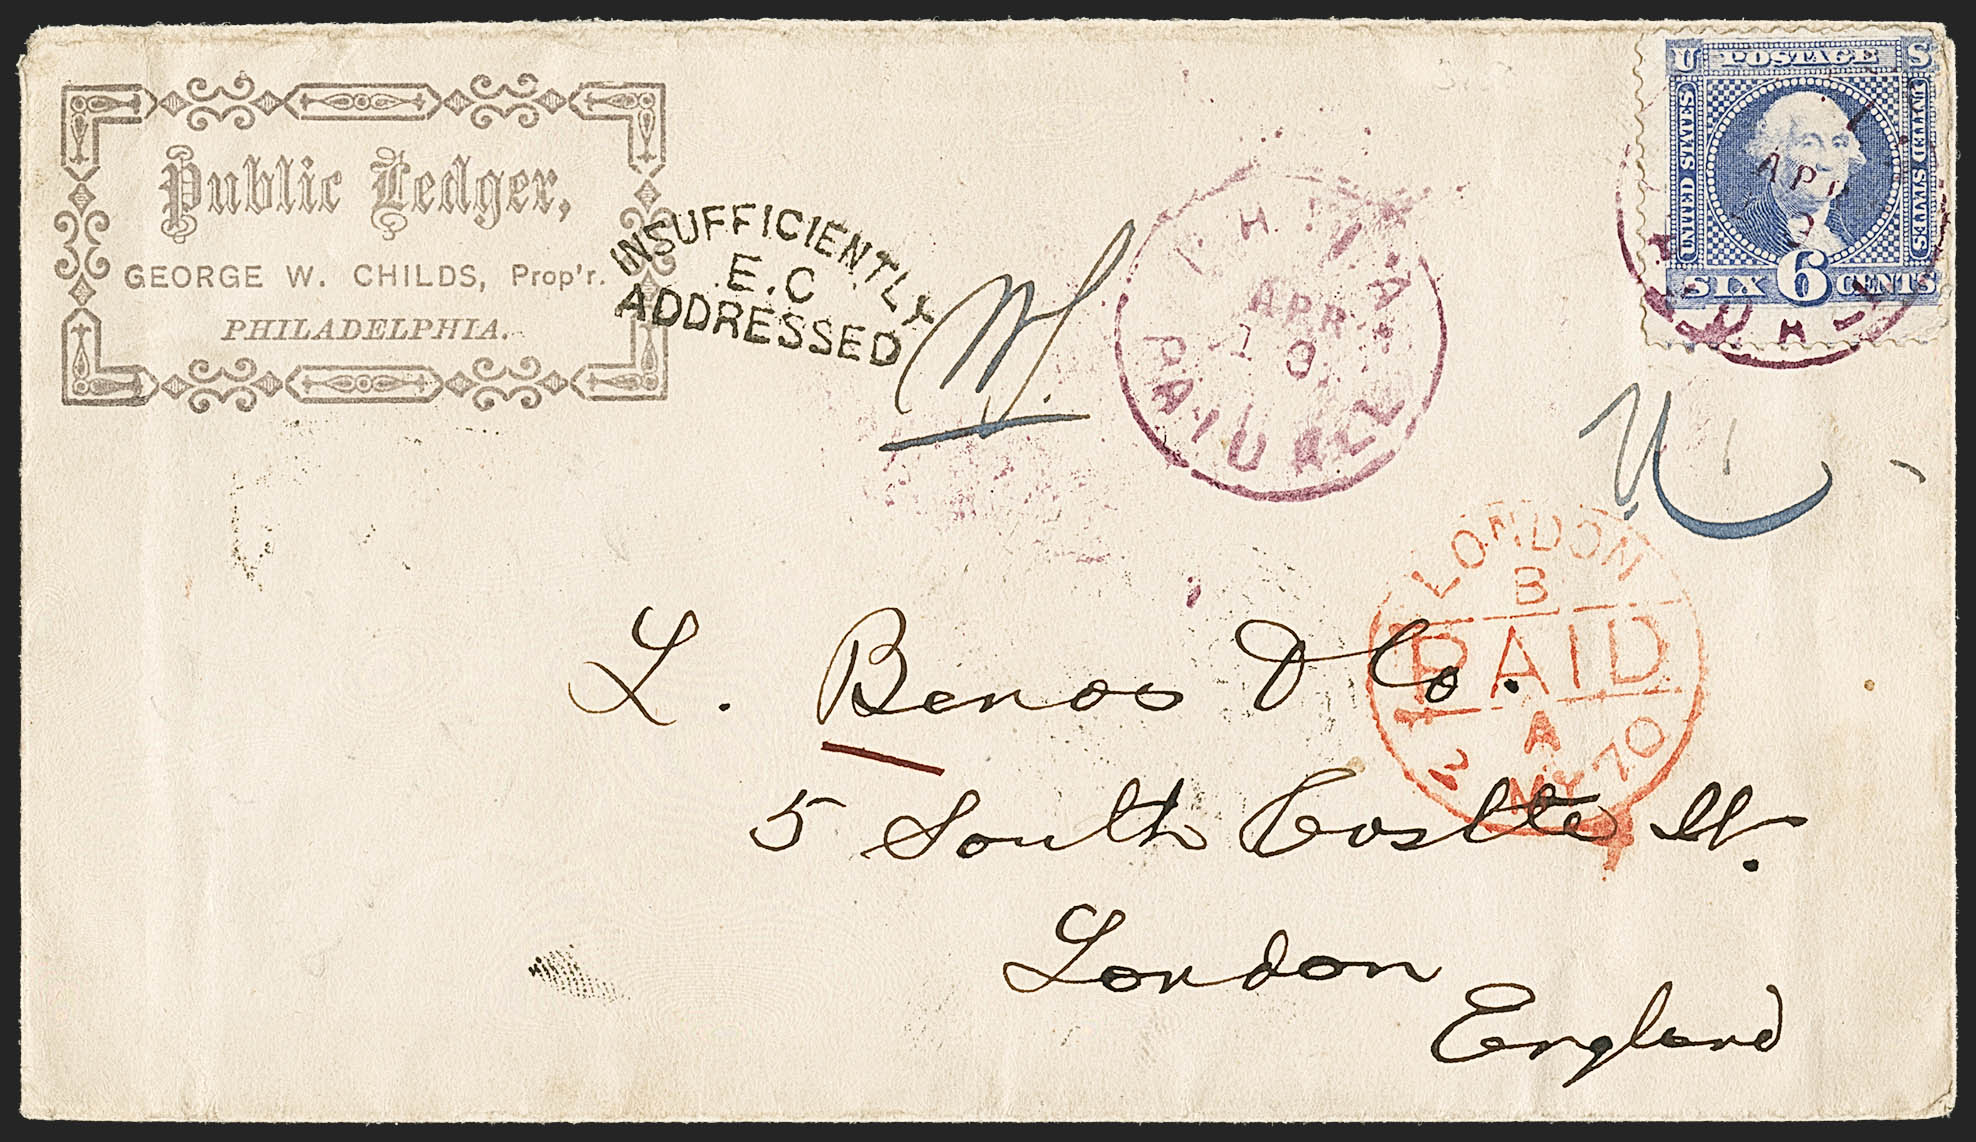 Public Ledger,
GEORGE W. CHILDS, Prop'r.
PHILADELPHIA.
INSUFFICIENTLY
E.C
ADDRESSED
PHILA.
APR
10
PAID ALL
U S
POSTAGE
UNITED STATES
UNITED STATES
SIX 6 CENTS
APR
LONDON
B
PAID
A
2 MY 70
L. Benos & Co.
5 South Castle St.
London
England